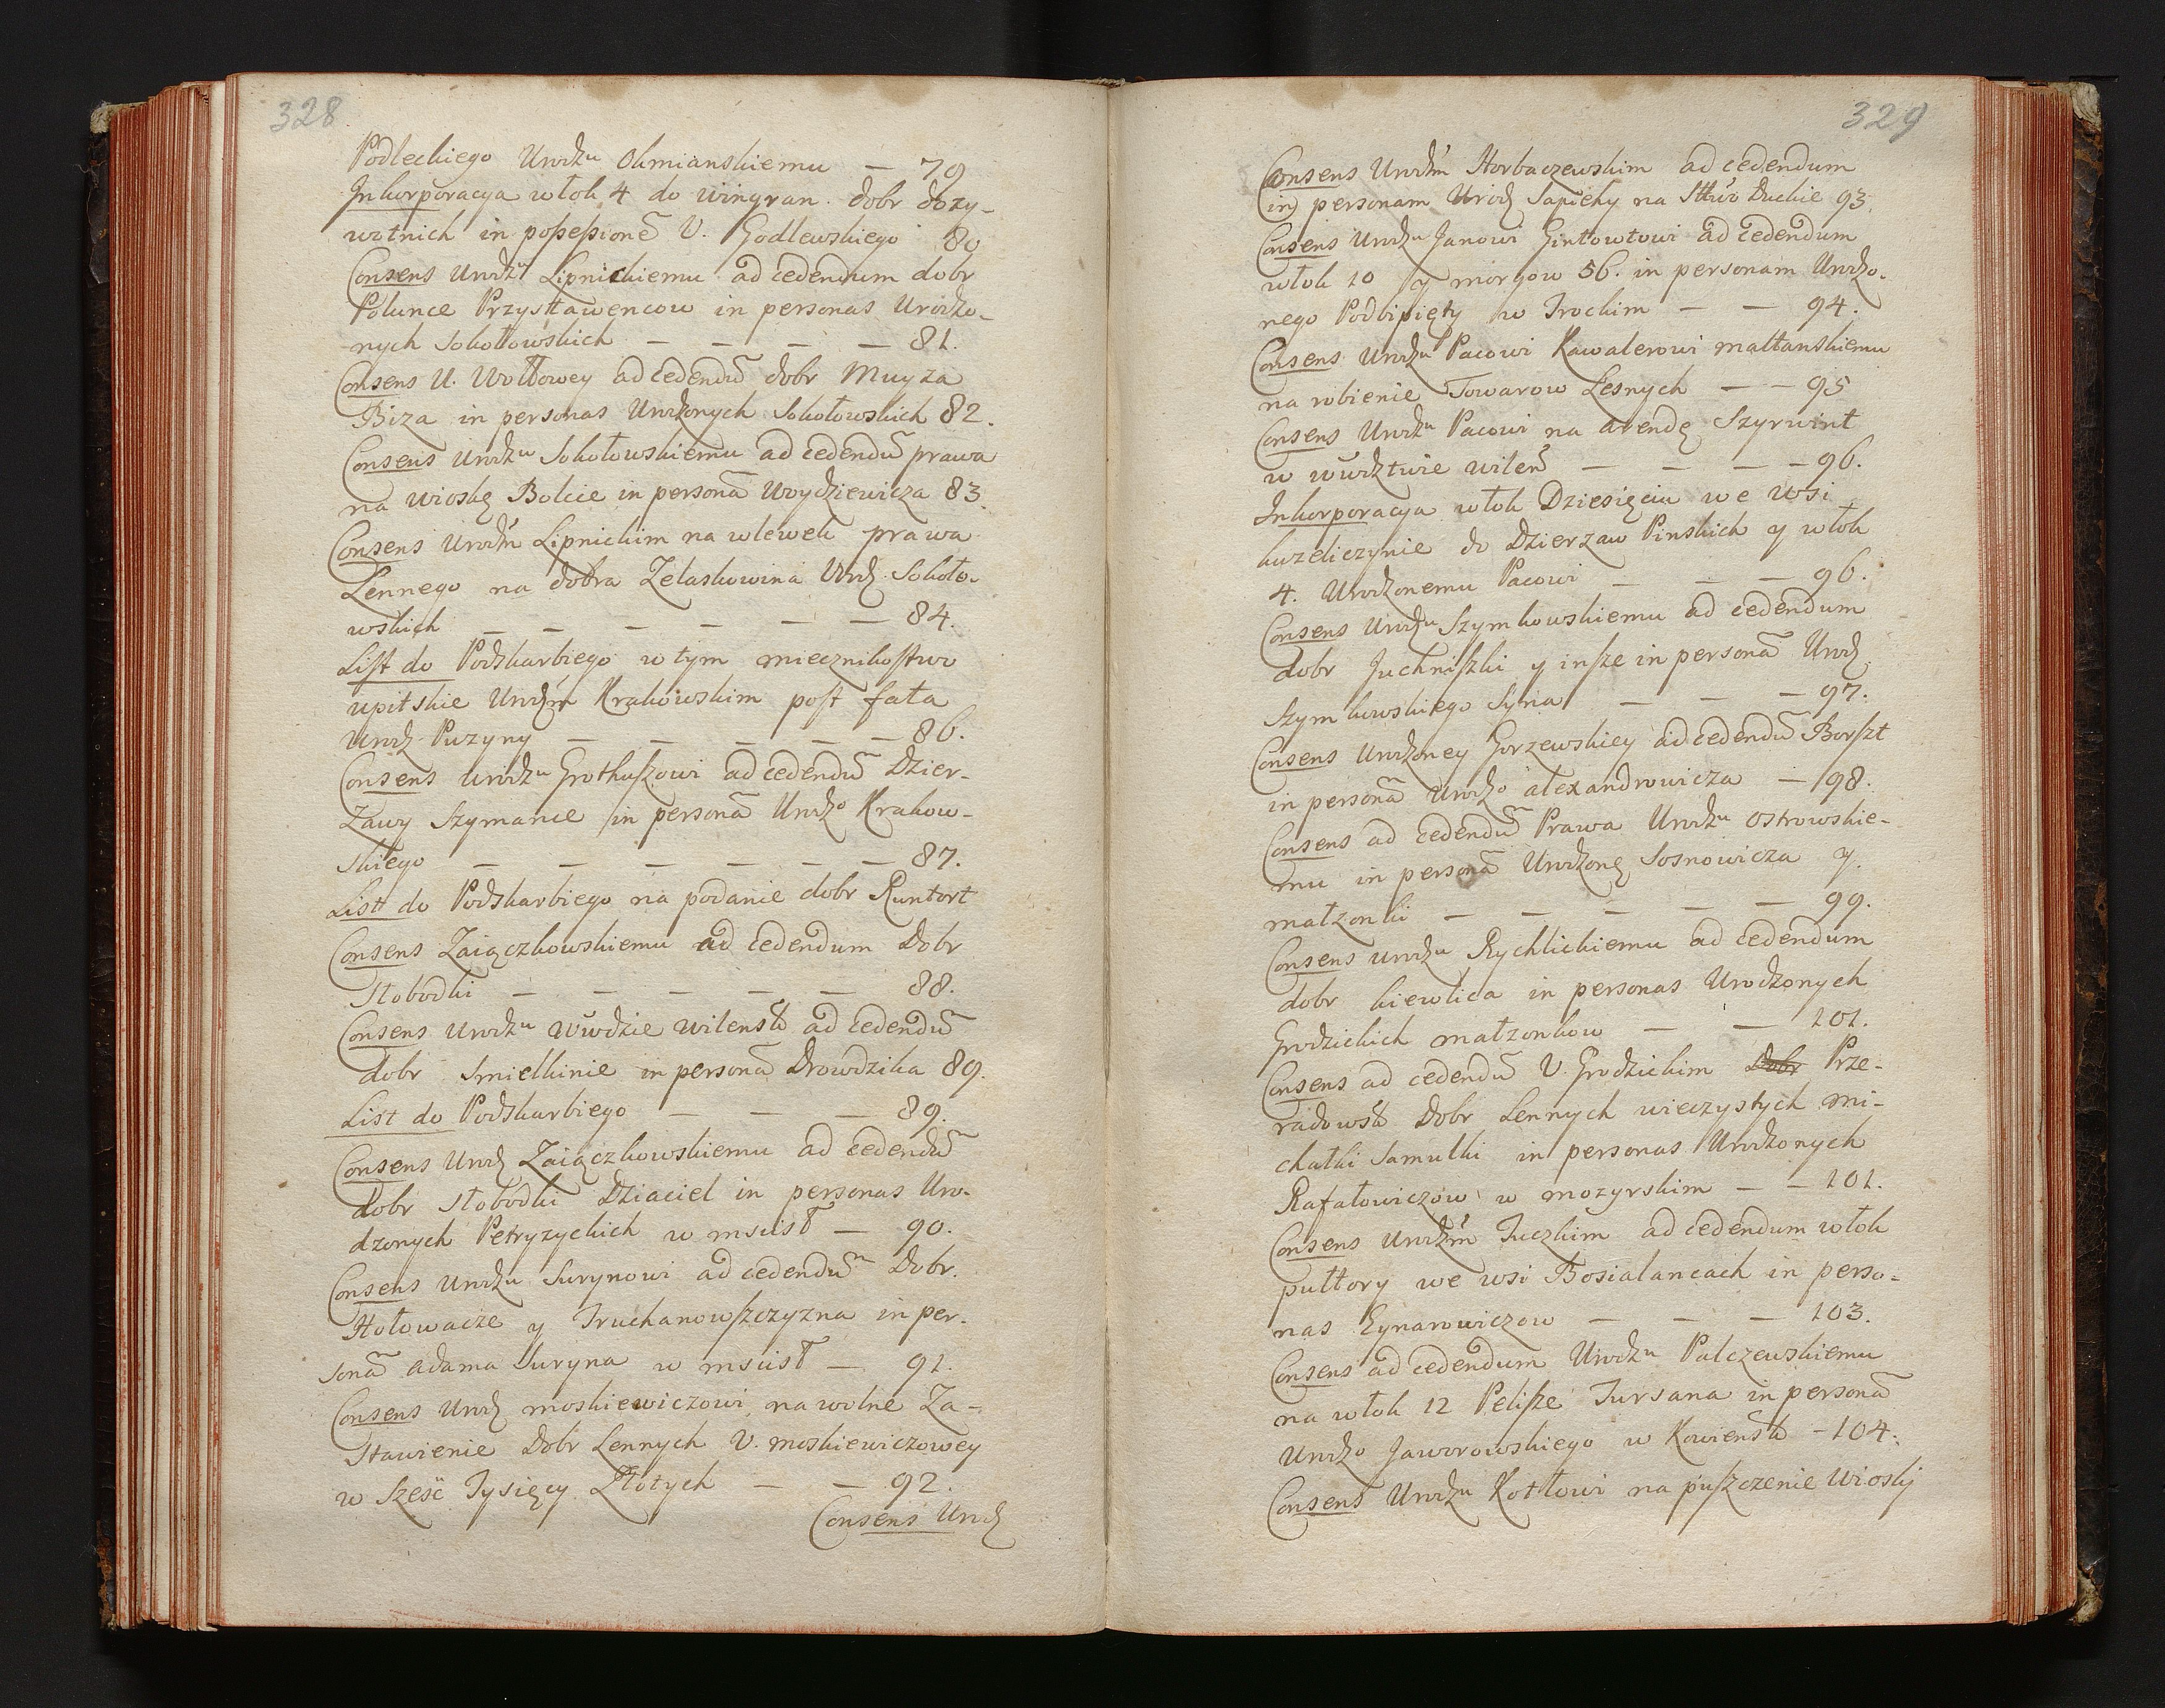 328
Podleckiego Urodzu Okmianskiemu — 79
Inkorporacya włok 4 do wingran. dobr dozy-
wotnich in possessionē U. Godlewskiego 80
Consens Urodzu Lipnickiemu ad cedendum dobr
Polunce Przystawencow in personas Urodzo-
nych Sokołowskich — — — — 81.
Consens U. Wołłowey ad cedendū dobr Muyza
Biza in personas Urodzonych Sokołowskich 82.
Consens Urodzu Sokołowskiemu ad cedendū prawa
na wioskę Bolcie in personā Woydziewicza 83.
Consens Urodźm Lipnickim na wlewek prawa
Lennego na dobra Zelaskowina Urodz. Sokoło-
wskich — — — — — — 84.
List do Podskarbiego w tym miecznikostwo
upitskie Urodźm Krakowskim post fata
Urodz. Puzyny — — — — — 86.
Consens Urodzu Grothuszowi ad cedendū Dzier-
zawy Szymance in personā Urodzo Krakow-
skiego — — — — — — 87.
List do Podskarbiego na podanie dobr Runtort
Consens Zaiączkowskiemu ad cedendum Dobr
Słobodki — — — — — 88.
Consens Urodzu wwdzie wilensk ad cedendū
dobr Smielkinie in personā Drowdzika 89.
List do Podskarbiego — — — 89.
Consens Urodz Zaiączkowskiemu ad cedendū
dobr Słobodki Dziaciel in personas Uro-
dzonych Petryzyckich w mscisł — 90.
Consens Urodzu Surynowi ad cedendū Dobr.
Hołowacze y Truchanowszczyzna in per-
sonā adama Suryna w mscisł — 91.
Consens Urodz moskiewiczowi na wolne Za-
stawienie Dobr Lennych U. moskiewiczowey
w Sześć Tysięcy Złotych — — 92.
Consens Urodz
329
Consens Urodźm Horbaczewskim ad cedendum
in personam Urodz Sapiehy na Sttwo Duckie 93.
Consens Urodzu Janowi Gintowtowi ad cedendum
włok 10 y morgow 56. in personam Urodzo-
nego Podbipięty w Trockim — — 94.
Consens Urodzu Pacowi Kawalerowi maltanskiemu
na robienie Towarow Lesnych — — 95
Consens Urodzu Pacowi na arendę Szyrwint
w wwdztwie wileń — — — — 96.
Inkorporacya włok Dziesięciu we wsi
kuzeliczynie do Dzierzaw Pinskich y włok
4. Urodzonemu Pacowi — — — 96.
Consens Urodzu Szymkowskiemu ad cedendum
dobr Juchniszki y insze in personā Urodz
Szymkowskiego Syna — — — 97.
Consens Urodzoney Gorzewskiey ad cedendū Borszt
in personā Urodzo alexandrowicza — 98.
Consens ad cedendū Prawa Urodzu ostrowskie-
mu in personā Urodzonę Sosnowicza y.
małzonki — — — — — 99.
Consens urodzu Rychlickiemu ad cedendum
dobr kiewlica in personas Urodzonych
Grodzickich małzonkow — — 101.
Consens ad cedendū U. Grodzickim Dobr Prze-
radowsk Dobr Lennych wieczystych mi-
chałki Samulki in personas Urodzonych
Rafałowiczow w mozyrskim — — 101.
Consens Urodźm Tuczkim ad cedendum włok
pułtory we wsi Bosialancach in perso-
nas Eynarowiczow — — — 103.
Consens ad cedendum Urodzu Palczewskiemu
na włok 12 Pelisze Tursana in personā
Urodzo Jaworowskiego w Kowieńsk — 104.
Consens Urodzu Kotłowi na puszczenie Wioski